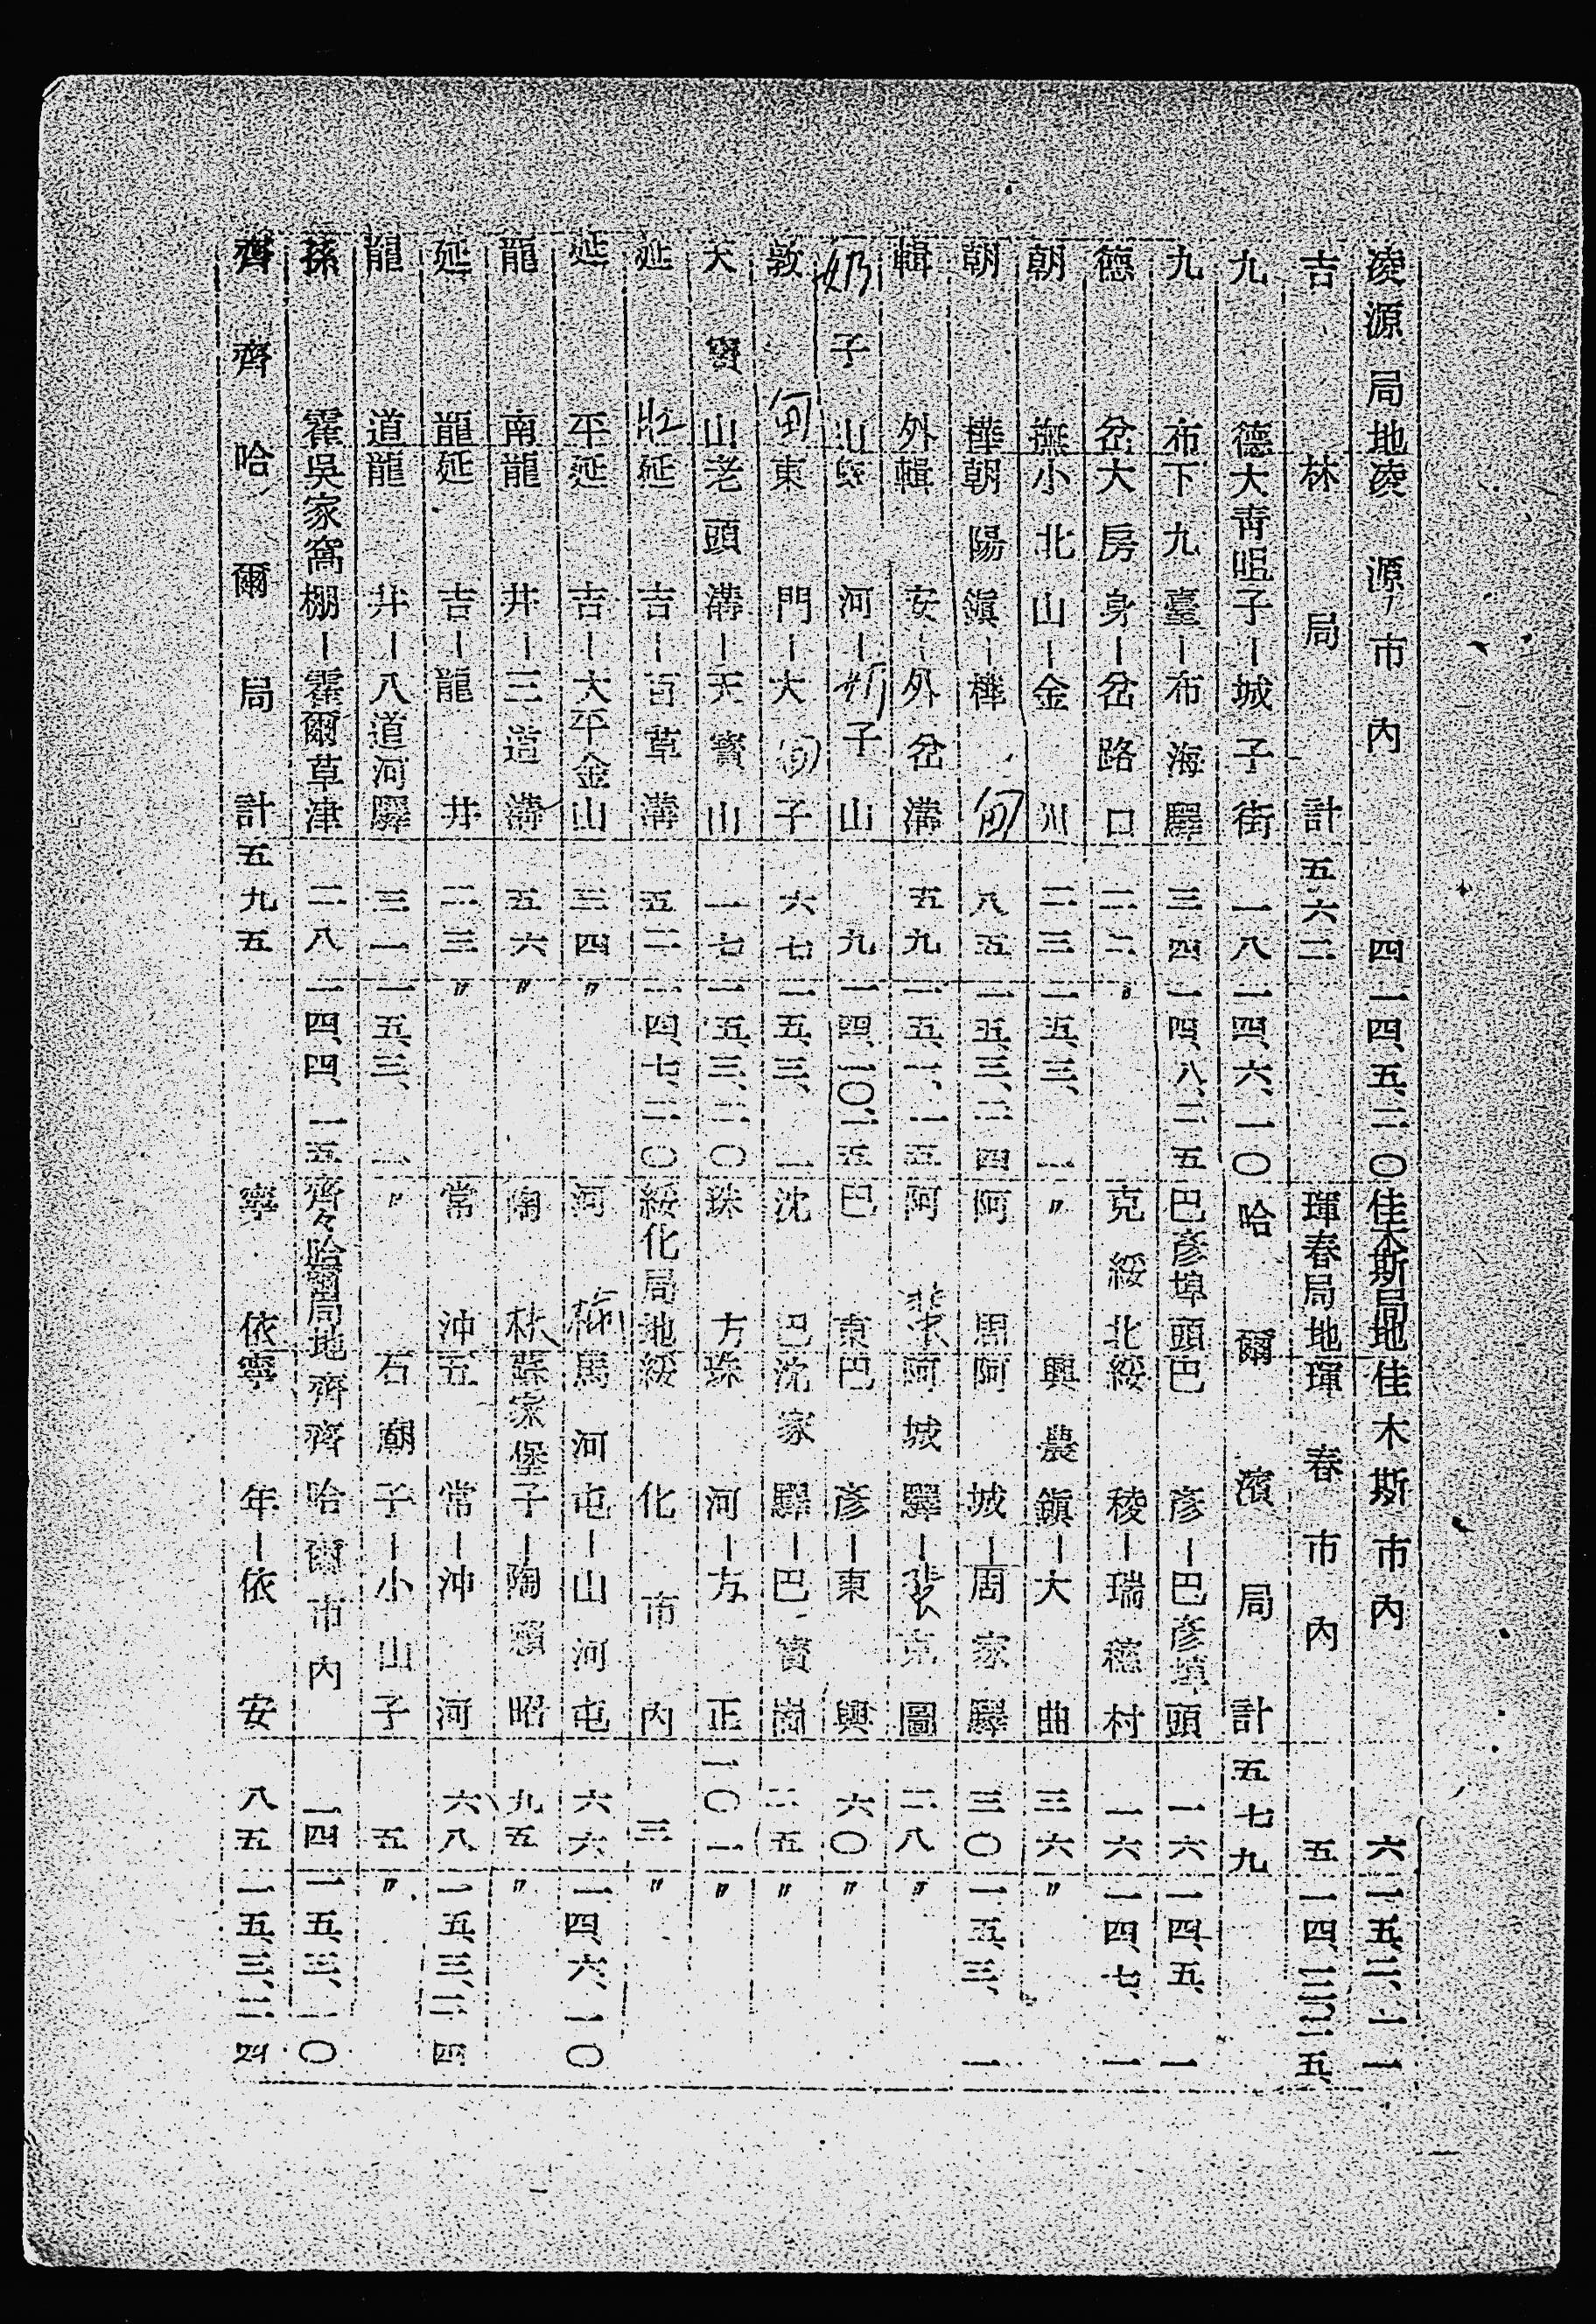 凌源局地 凌源市內 四 一四、五、二〇 佳木斯局地 佳木斯市內 六 一五、三、一一
吉林局計 五六二 琿春局地 琿春市內 五 一四、三、二五
九德 大青咀子―城子街 一八 一四、六、一〇 哈爾濱局計 五七九
九布 下九臺―布海驛 三四 一四、八、二五 巴彥埠頭 巴彥―巴彥埠頭 一六 一四、五、一
德岔 大房身―岔路口 二二 〃 克綏北 綏稜―瑞德村 一六 一四、七、一
朝撫 小北山―金川 二三 一五、三、一 〃 興農鎮―大曲 三六 〃
朝樺 朝陽鎮―樺甸 八五 一五、三、二四 阿周 阿城―周家驛 三〇 一五、三、一
輯外 輯安―外岔溝 五九 一五、一、一五 阿裴 阿城驛―裴克圖 二八 〃
奶子山 蛟河―奶子山 九 一四、一〇、二五 巴東 巴彥―東興 六〇 〃
敦甸 東門―大甸子 六七 一五、三、一 沈巴 沈家驛―巴寶崗 二五 〃
天寶山 老頭溝―天寶山 一七 一五、三、二〇 珠方 珠河―方正 一〇一 〃
延壯 延吉―百草溝 五二 一四、七、二〇 綏化局地 綏化市內 三 〃
延平 延吉―太平金山 三四 〃 河 馬河屯―山河屯 六六 一四、六、一〇
龍南 龍井―三道溝 五六 〃 陶 蔡家堡子―陶賴昭 九五 〃
延龍 延吉―龍井 二三 〃 常沖 五常―沖河 六八 一五、三、二四
龍道 龍井―八道河驛 三一 一五、三、一 〃 石廟子―小山子 五 〃
孫霍 吳家窩棚―霍爾草津 二八 一四、四、一五 齊々哈爾局地 齊齊哈爾市內 一四 一五、三、一〇
齊齊哈爾局計 五九五 寧依 寧年―依安 八五 一五、三、二四